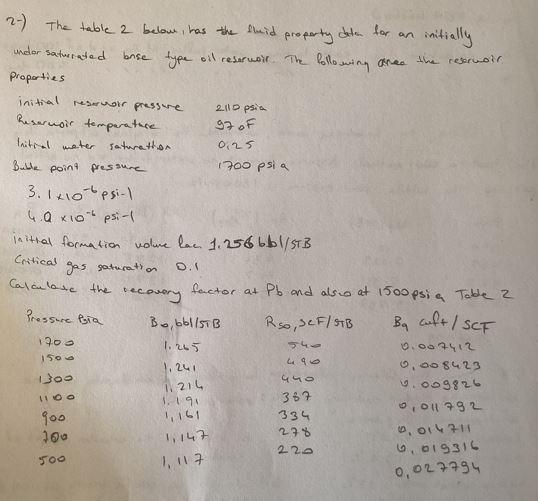 2-) The table 2 below, has the fluid property data for an initially
undersaturated lense type oil reservoir. The following are the reservoir
Properties
initial reservoir pressure 2110 psia
Reservoir temperature 97 oF
Initial water saturation 0,25
Buble point pressure 1700 psia
3.1x10-6 psi-1
4.0 x10-6 psi-1
Initial formation volume fac. 1.256 bbl/STB
Critical gas saturation 0.1
Calculate the recovery factor at Pb and also at 1500 psia Table 2
Pressure Psia Bo, bbl/STB Rso, SCF/STB Bg cuft/SCF
1700 1.265 540 0.007412
1500 1.241 490 0,008423
1300 1.214 440 0.009826
1100 1.191 387 0,011792
900 1,161 334 0,014711
700 1,147 278 0,019316
500 1,117 220 0,027794